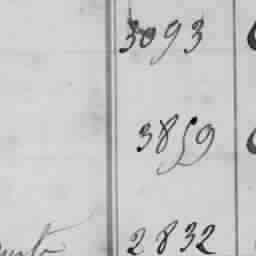 3093
3859
2832